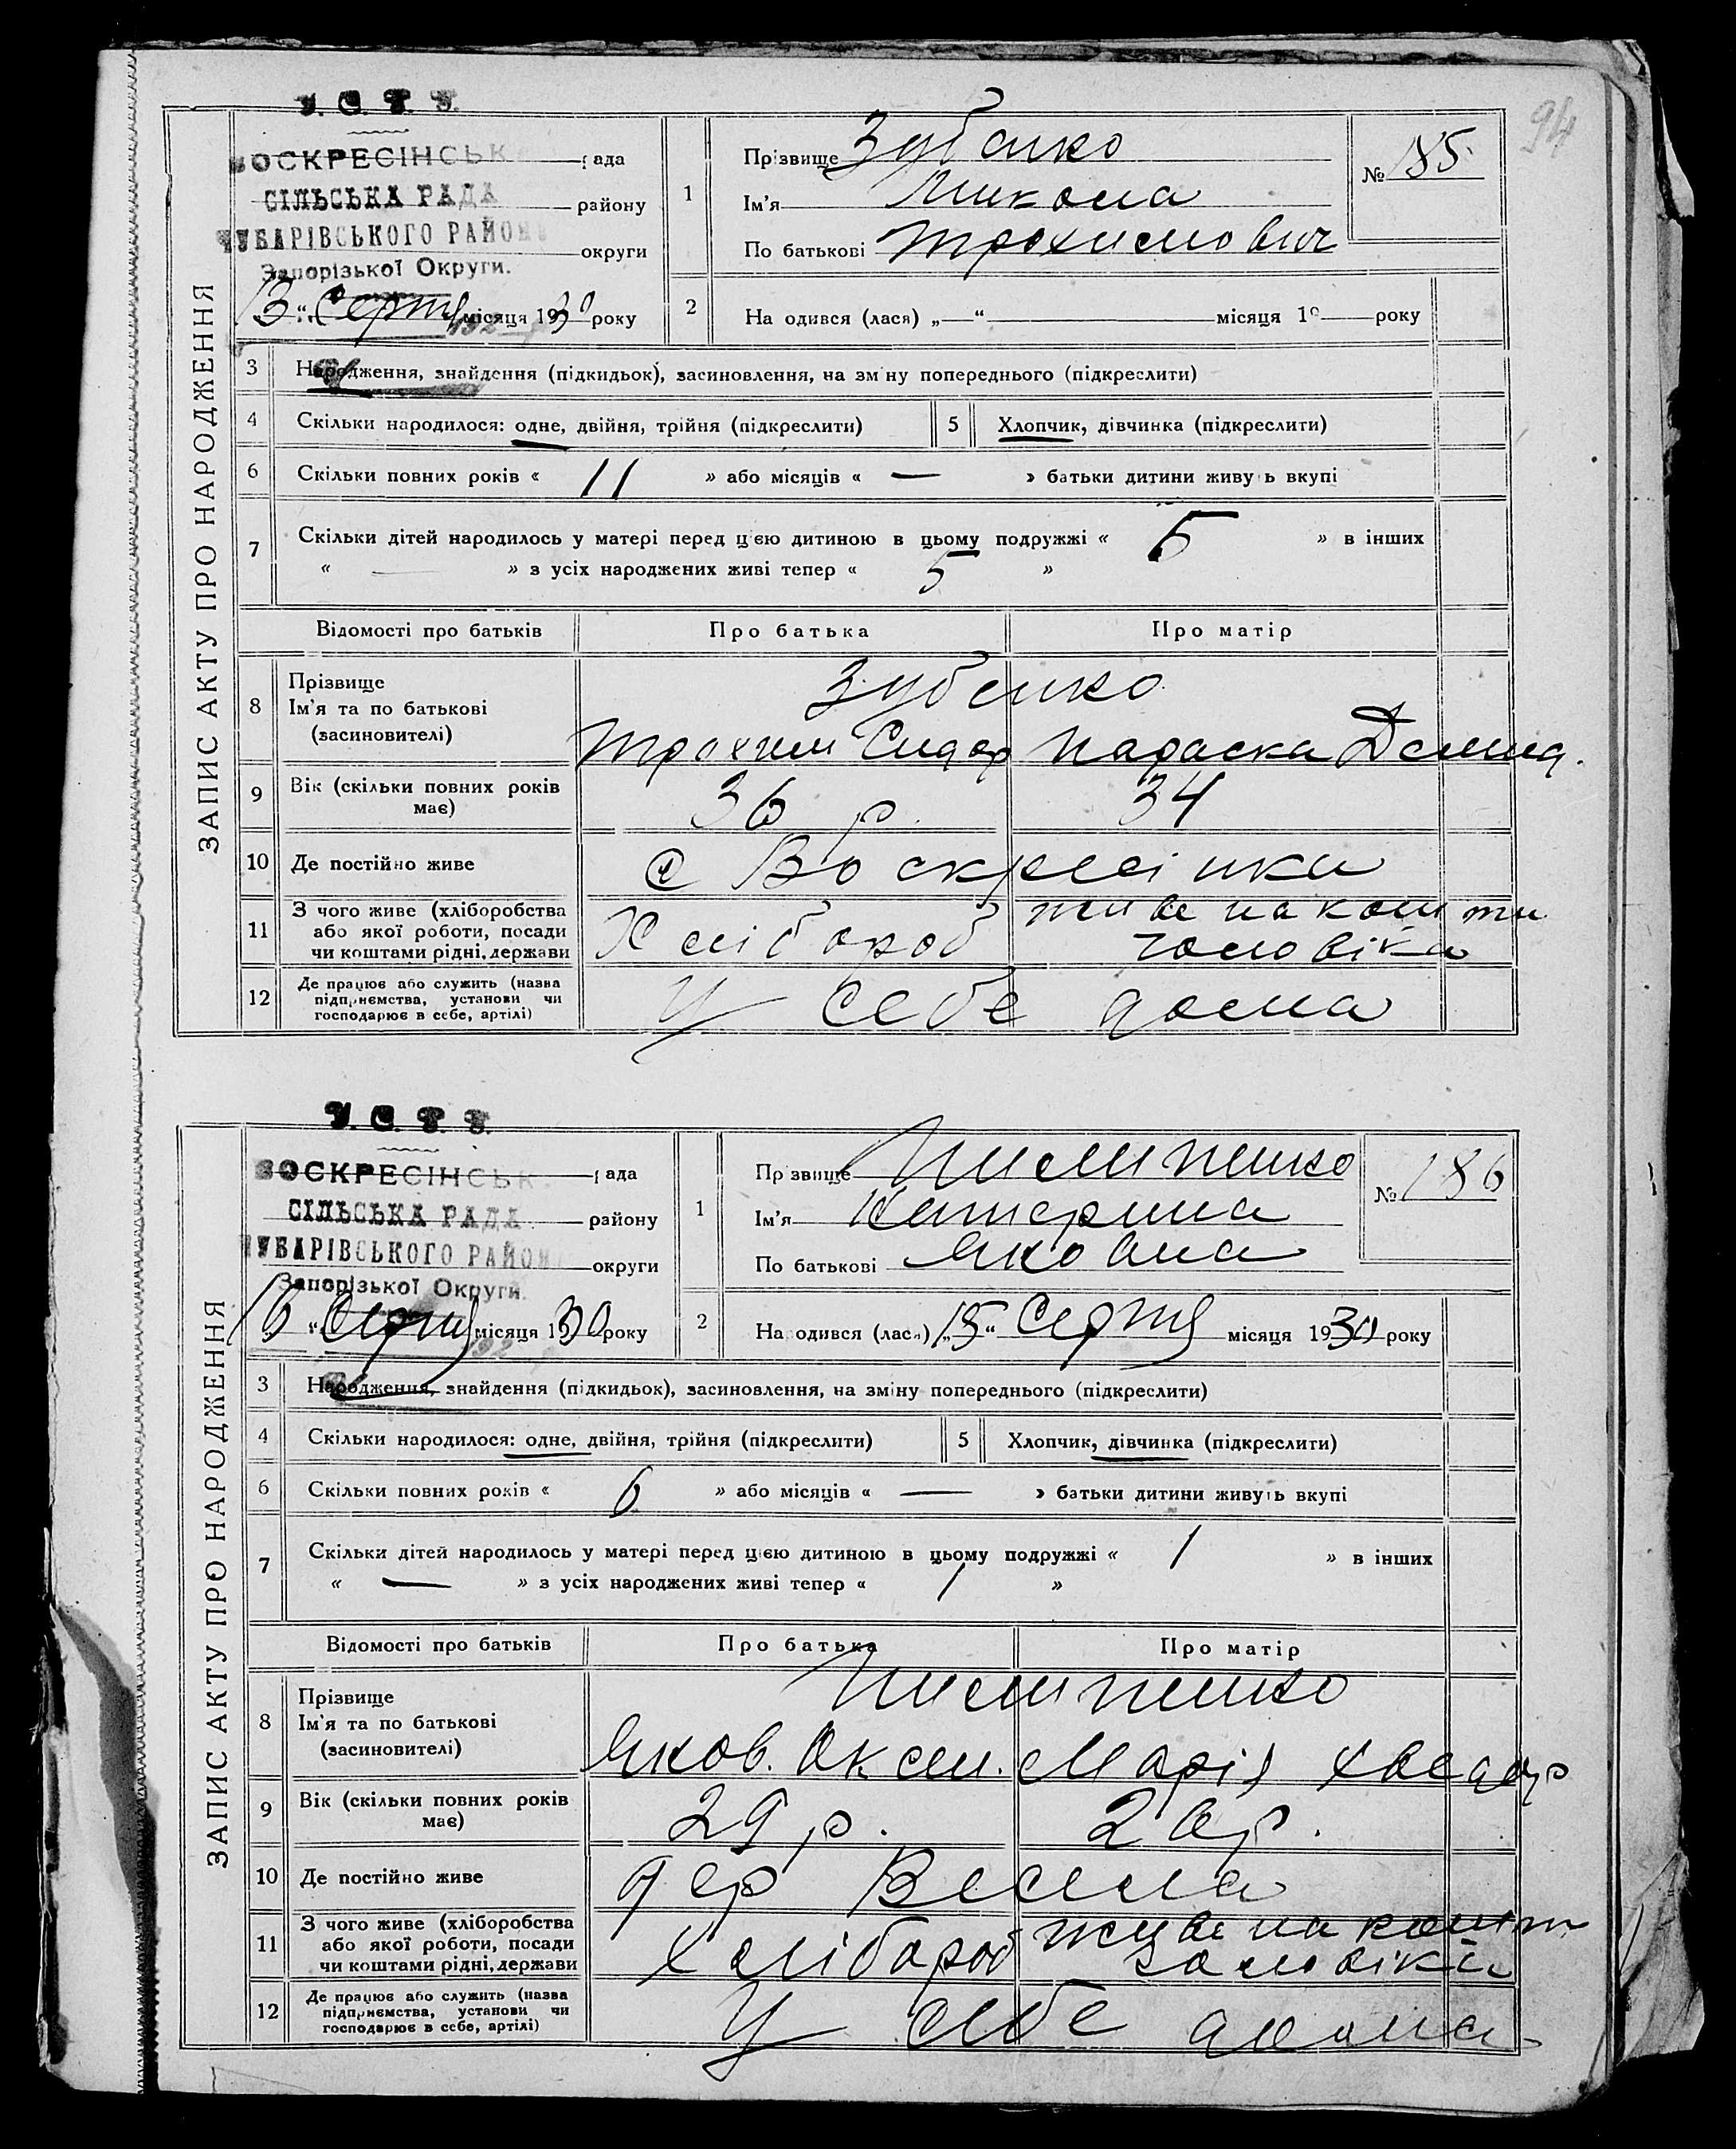 94
У. С. Р. Р.
ВОСКРЕСІНСЬК рада
СІЛЬСЬКА РАДА району
ЧУБАРІВСЬКОГО РАЙОН округи
Запорізької Округи.
13 “ Серпня місяця 1930 року
1
Прізвище Зубенко
Ім’я Микола
По батькові Трохимович
№ 185
2 На одився (лася) „—“ — місяця 19 — року
ЗАПИС АКТУ ПРО НАРОДЖЕННЯ
3 Народження, знайдення (підкидьок), засиновлення, на зміну попереднього (підкреслити)
4 Скільки народилося: одне, двійня, трійня (підкреслити) 5 Хлопчик, дівчинка (підкреслити)
6 Скільки повних років « 11 » або місяців « — » батьки дитини живуть вкупі
7 Скільки дітей народилось у матері перед цією дитиною в цьому подружжі « 5 » в інших
« — » з усіх народжених живі тепер « 5 »
Відомості про батьків Про батька Про матір
8 Прізвище
Ім’я та по батькові
(засиновителі)
Зубенко
Трохим Сидор Параска Демид.
9 Вік (скільки повних років має) 36 р. 34
10 Де постійно живе с Воскресінка
11 З чого живе (хліборобства
або якої роботи, посади
чи коштами рідні, держави
Хлібороб живе на кошти
чоловіка
12 Де працює або служить (назва
підприємства, установи чи
господарює в себе, артілі)
У себе дома
У. С. Р. Р.
ВОСКРЕСІНСЬК рада
СІЛЬСЬКА РАДА району
ЧУБАРІВСЬКОГО РАЙОН округи
Запорізької Округи
16 “ Серпня місяця 1930 року
1
Прізвище Пилипенко
Ім’я Катерина
По батькові Яковна
№ 186
2 Народився (лася) „15“ Серпня місяця 1930 року
ЗАПИС АКТУ ПРО НАРОДЖЕННЯ
3 Народження, знайдення (підкидьок), засиновлення, на зміну попереднього (підкреслити)
4 Скільки народилося: одне, двійня, трійня (підкреслити) 5 Хлопчик, дівчинка (підкреслити)
6 Скільки повних років « 6 » або місяців « — » батьки дитини живуть вкупі
7 Скільки дітей народилось у матері перед цією дитиною в цьому подружжі « 1 » в інших
« — » з усіх народжених живі тепер « 1 »
Відомості про батьків Про батька Про матір
8 Прізвище
Ім’я та по батькові
(засиновителі)
Пилипенко
Яков. Оксен. Марія Хведор
9 Вік (скільки повних років має) 29 р. р.
10 Де постійно живе дер Весела
11 З чого живе (хліборобства
або якої роботи, посади
чи коштами рідні, держави
Хлібороб живе на кошт
чоловіка
12 Де працює або служить (назва
підприємства, установи чи
господарює в себе, артілі)
У себе дома